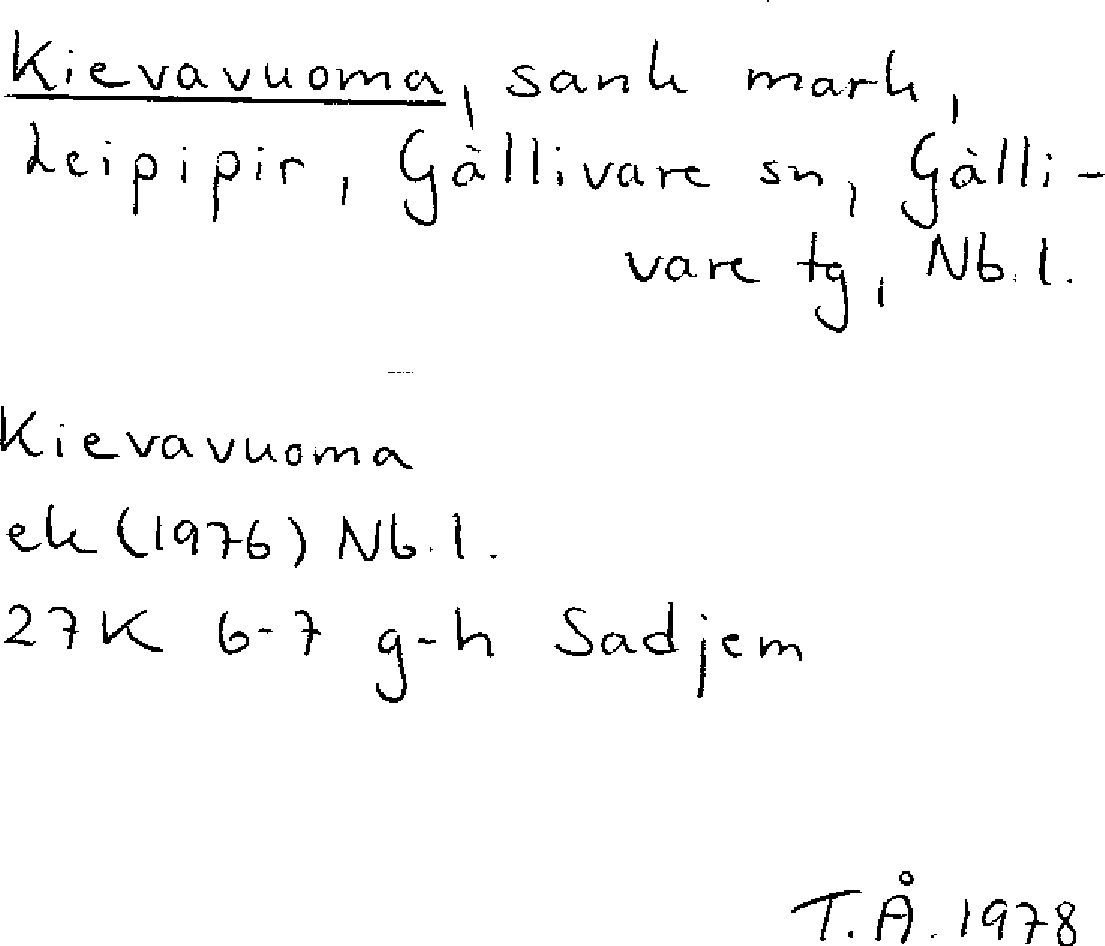 Kievavuoma, sank mark,
Leipipir, Gällivare sn, Gälli-
vare tg, Nb. l.
Kievavuoma
ek (1976) Nb. l.
27K 6-7 g-h Sadjem
T. Å. 1978